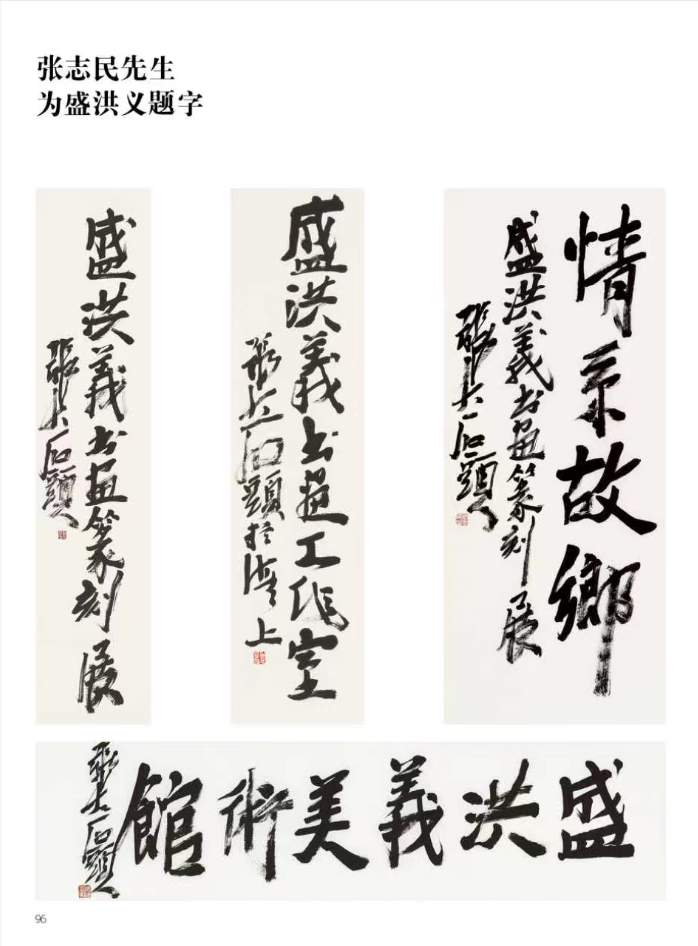 张志民先生
为盛洪义题字
盛洪義书画篆刻展
張大石頭
盛洪義书画工作室
張大石頭於濟上
情系故鄉
盛洪義书画篆刻展
張大石頭
盛洪義美術館
張大石頭
96